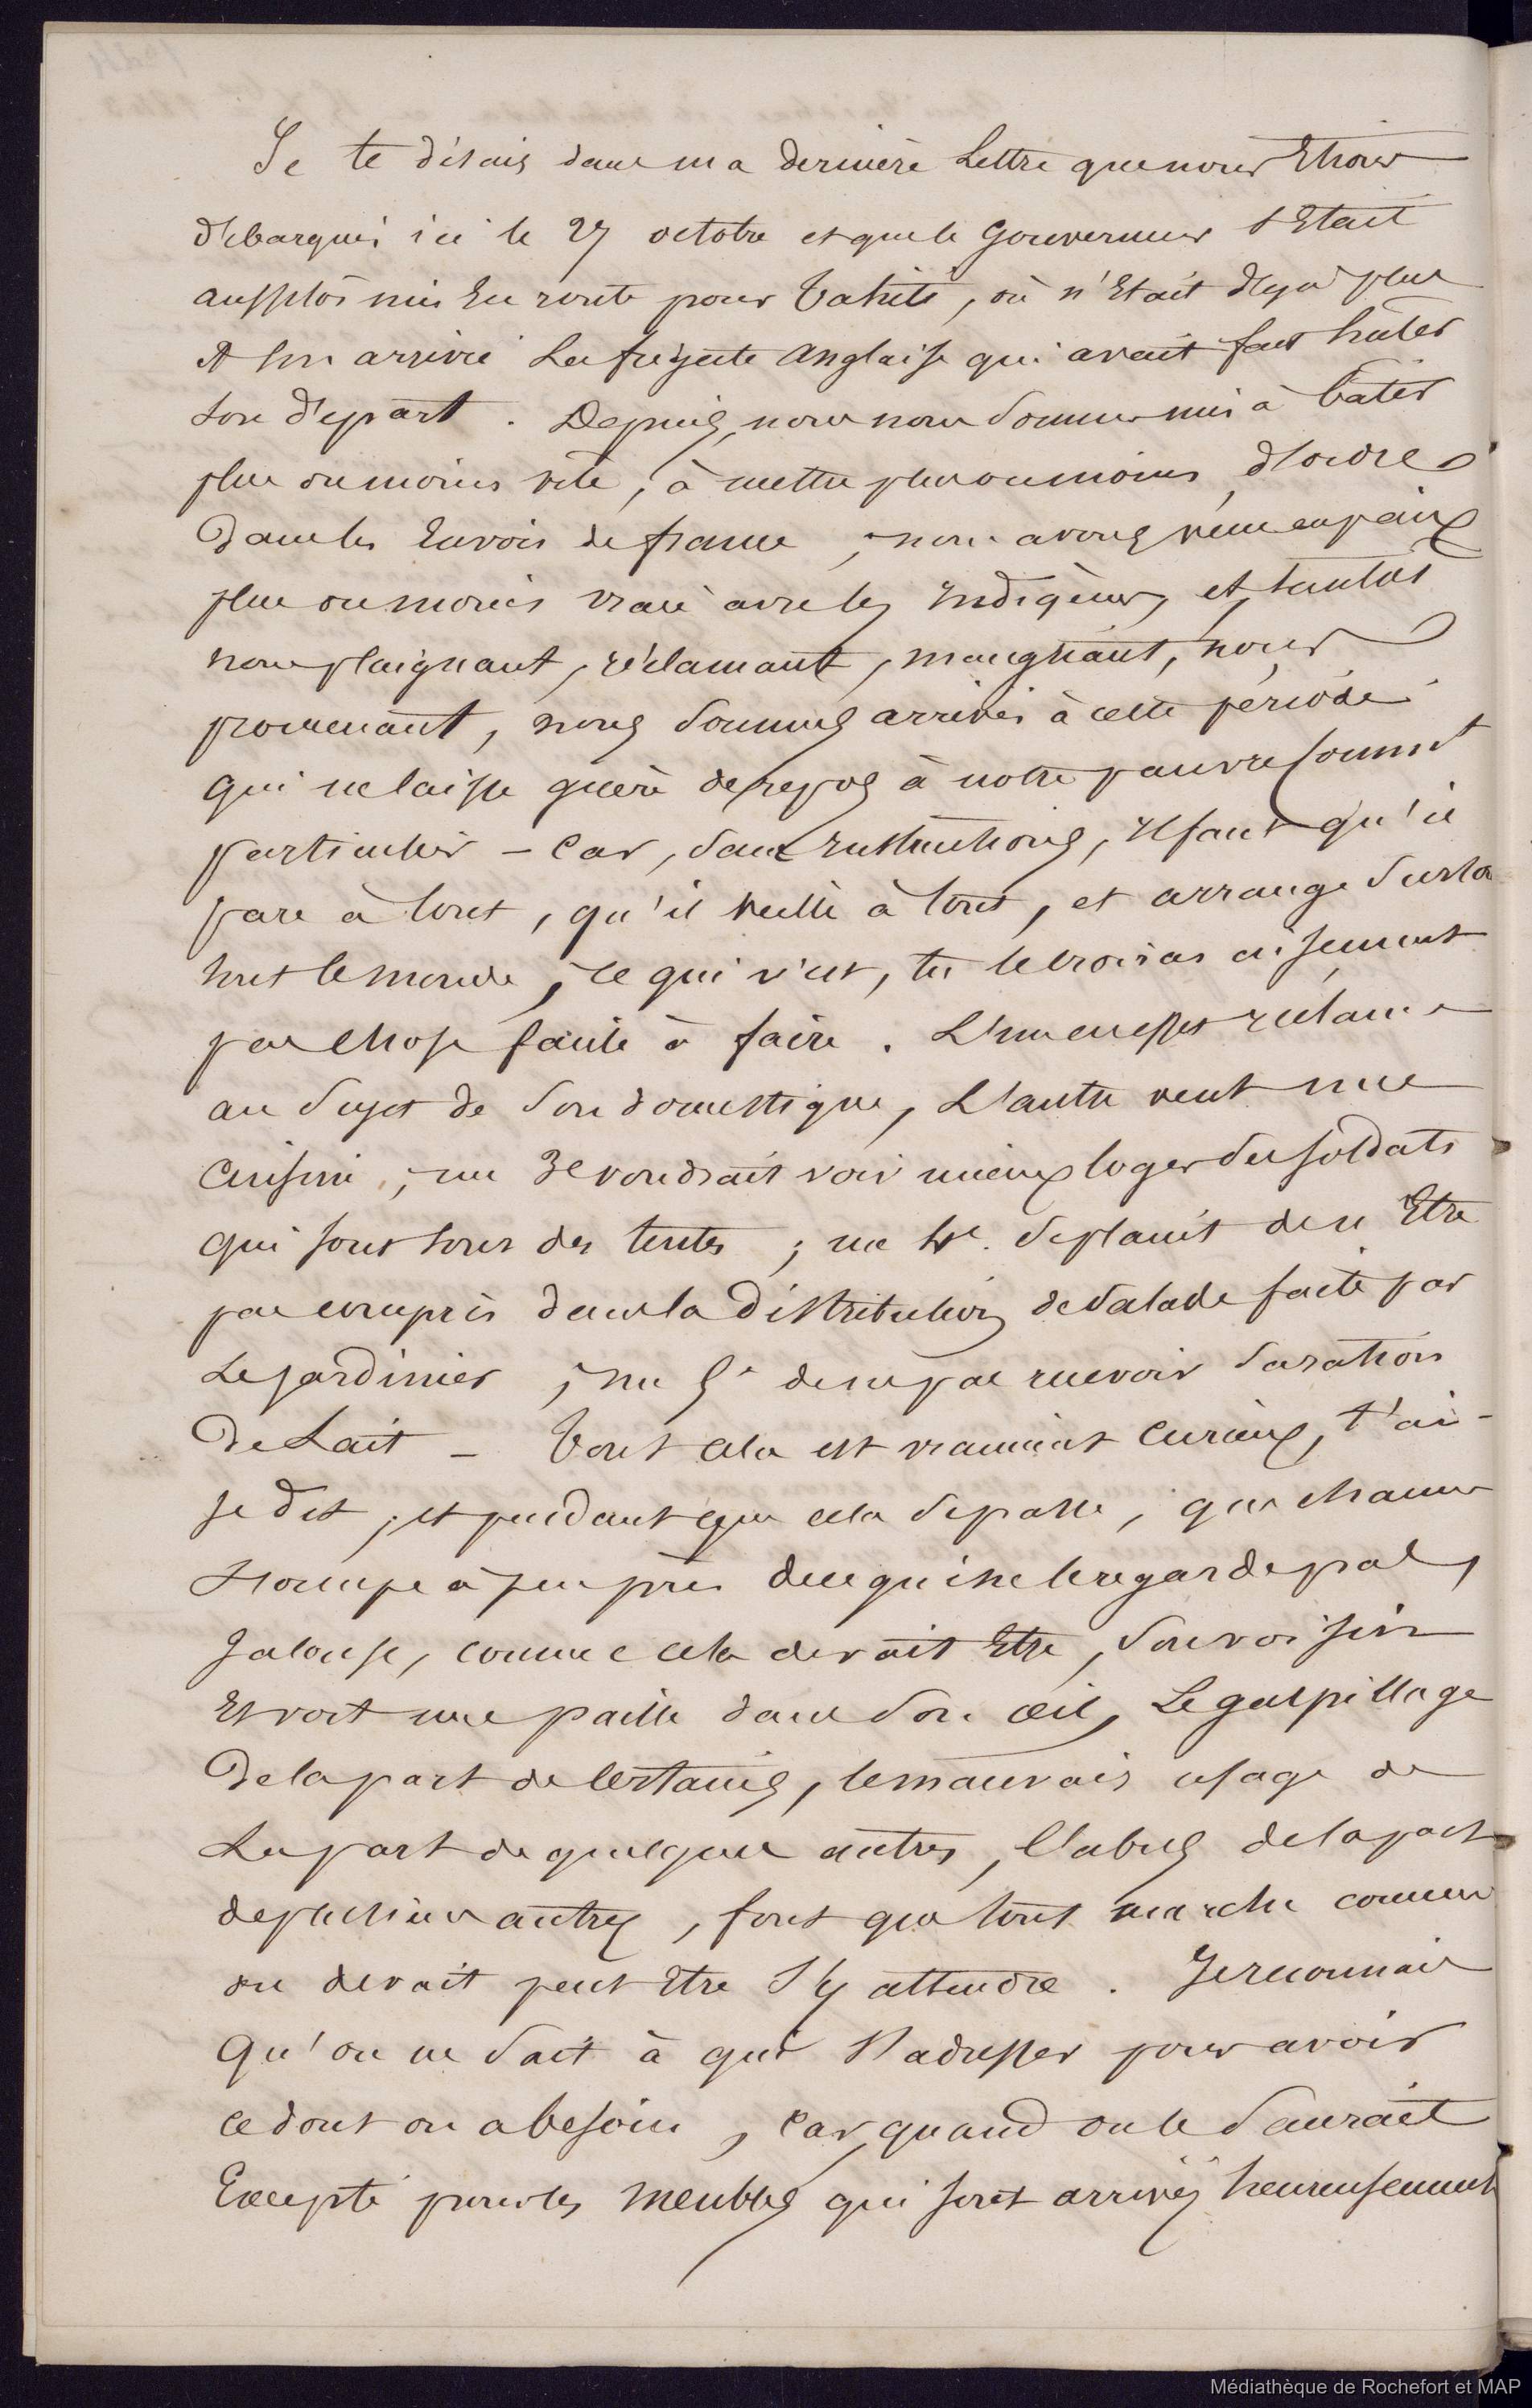 Je te disais dans ma dernière Lettre que nous Etions
débarqués ici le 27 octobre et que le Gouverneur s'Etait
aussitôt mis En route pour Tahiti, où n'Etait déjà plus
à son arrivée La frégate Anglaise qui avait fait hâter
son départ. Depuis, nous nous sommes mis à bâtir
plus ou moins vite, à mettre plus ou moins d'ordre
dans les Envois de france; nous avons vécu en paix
plus ou moins vraie avec les Indigènes, et, tantôt
nous plaignant, réclamant, mangeant, nous
promenant, nous sommes arrivés à cette période
qui ne laisse guère de repos à notre pauvre Command^t
particulier - Car, sans instructions, il faut qu'il
pare à tout, qu'il veille à tout, et arrange surtout
tout le monde, ce qui n'est, tu le croiras aisément
pas chose facile à faire. L'un en effet réclame
au sujet de son domestique, L'autre veut une
Cuisine; un 3e voudrait voir mieux loger des soldats
qui sont sous des tentes; un 4e. se plaint de n'Etre
pas compris dans la distribution de salade faite par
Le jardinier; un 5e de ne pas recevoir sa ration
De Lait - Tout cela est vraiment Curieux, t'ai-
je dit; et pendant que cela se passe, que chacun
s'occupe à peu près de ce qui ne le regarde pas,
Jalouse, comme cela devait Etre, son voisin
Et voit une paille dans son œil, Le gaspillage
De la part de Certains, le mauvais usage de
La part de quelques autres, l'abus de la part
de plusieurs autres, font que tout marche comme
on devait peut Etre s'y attendre. Je reconnais
Qu'on ne sait à qui s'adresser pour avoir
ce dont on a besoin, Car, quand on le saurait
Excepté pour les meubles qui sont arrivés heureusement
Médiathèque de Rochefort et MAP